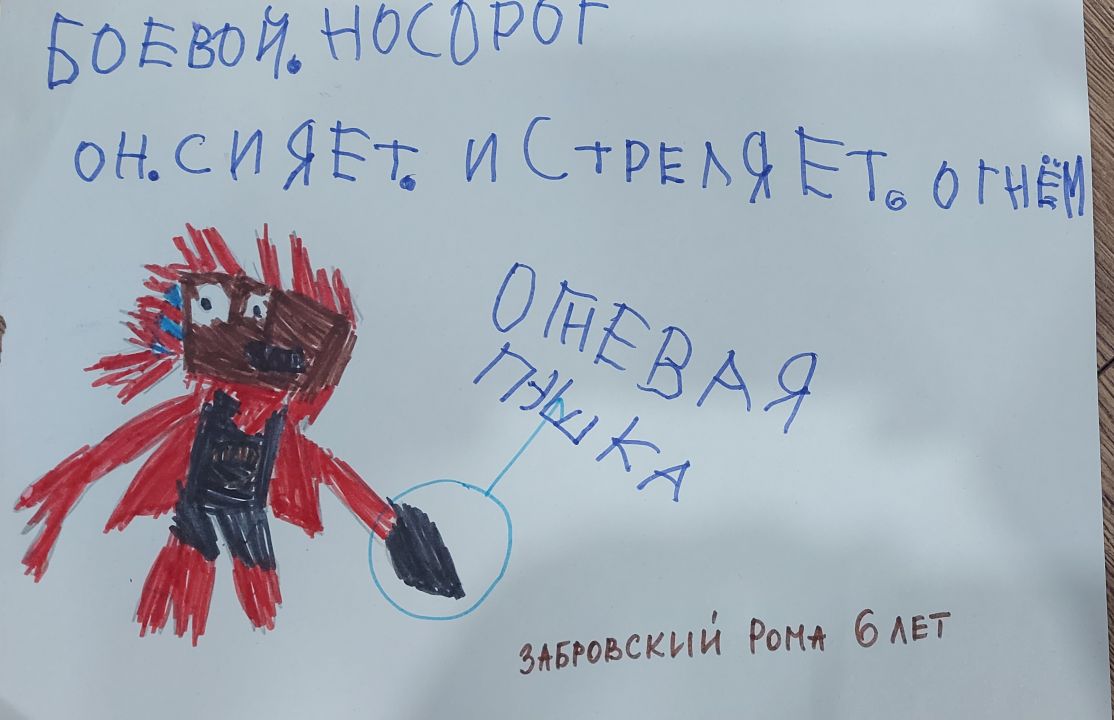 БОЕВОЙ. НОСОРОГ
ОН. СИЯЕТ. И СТРЕЛЯЕТ. ОГНЁМ
ОГНЕВАЯ
ПУШКА
ЗАБРОВСКИЙ РОМА 6 ЛЕТ